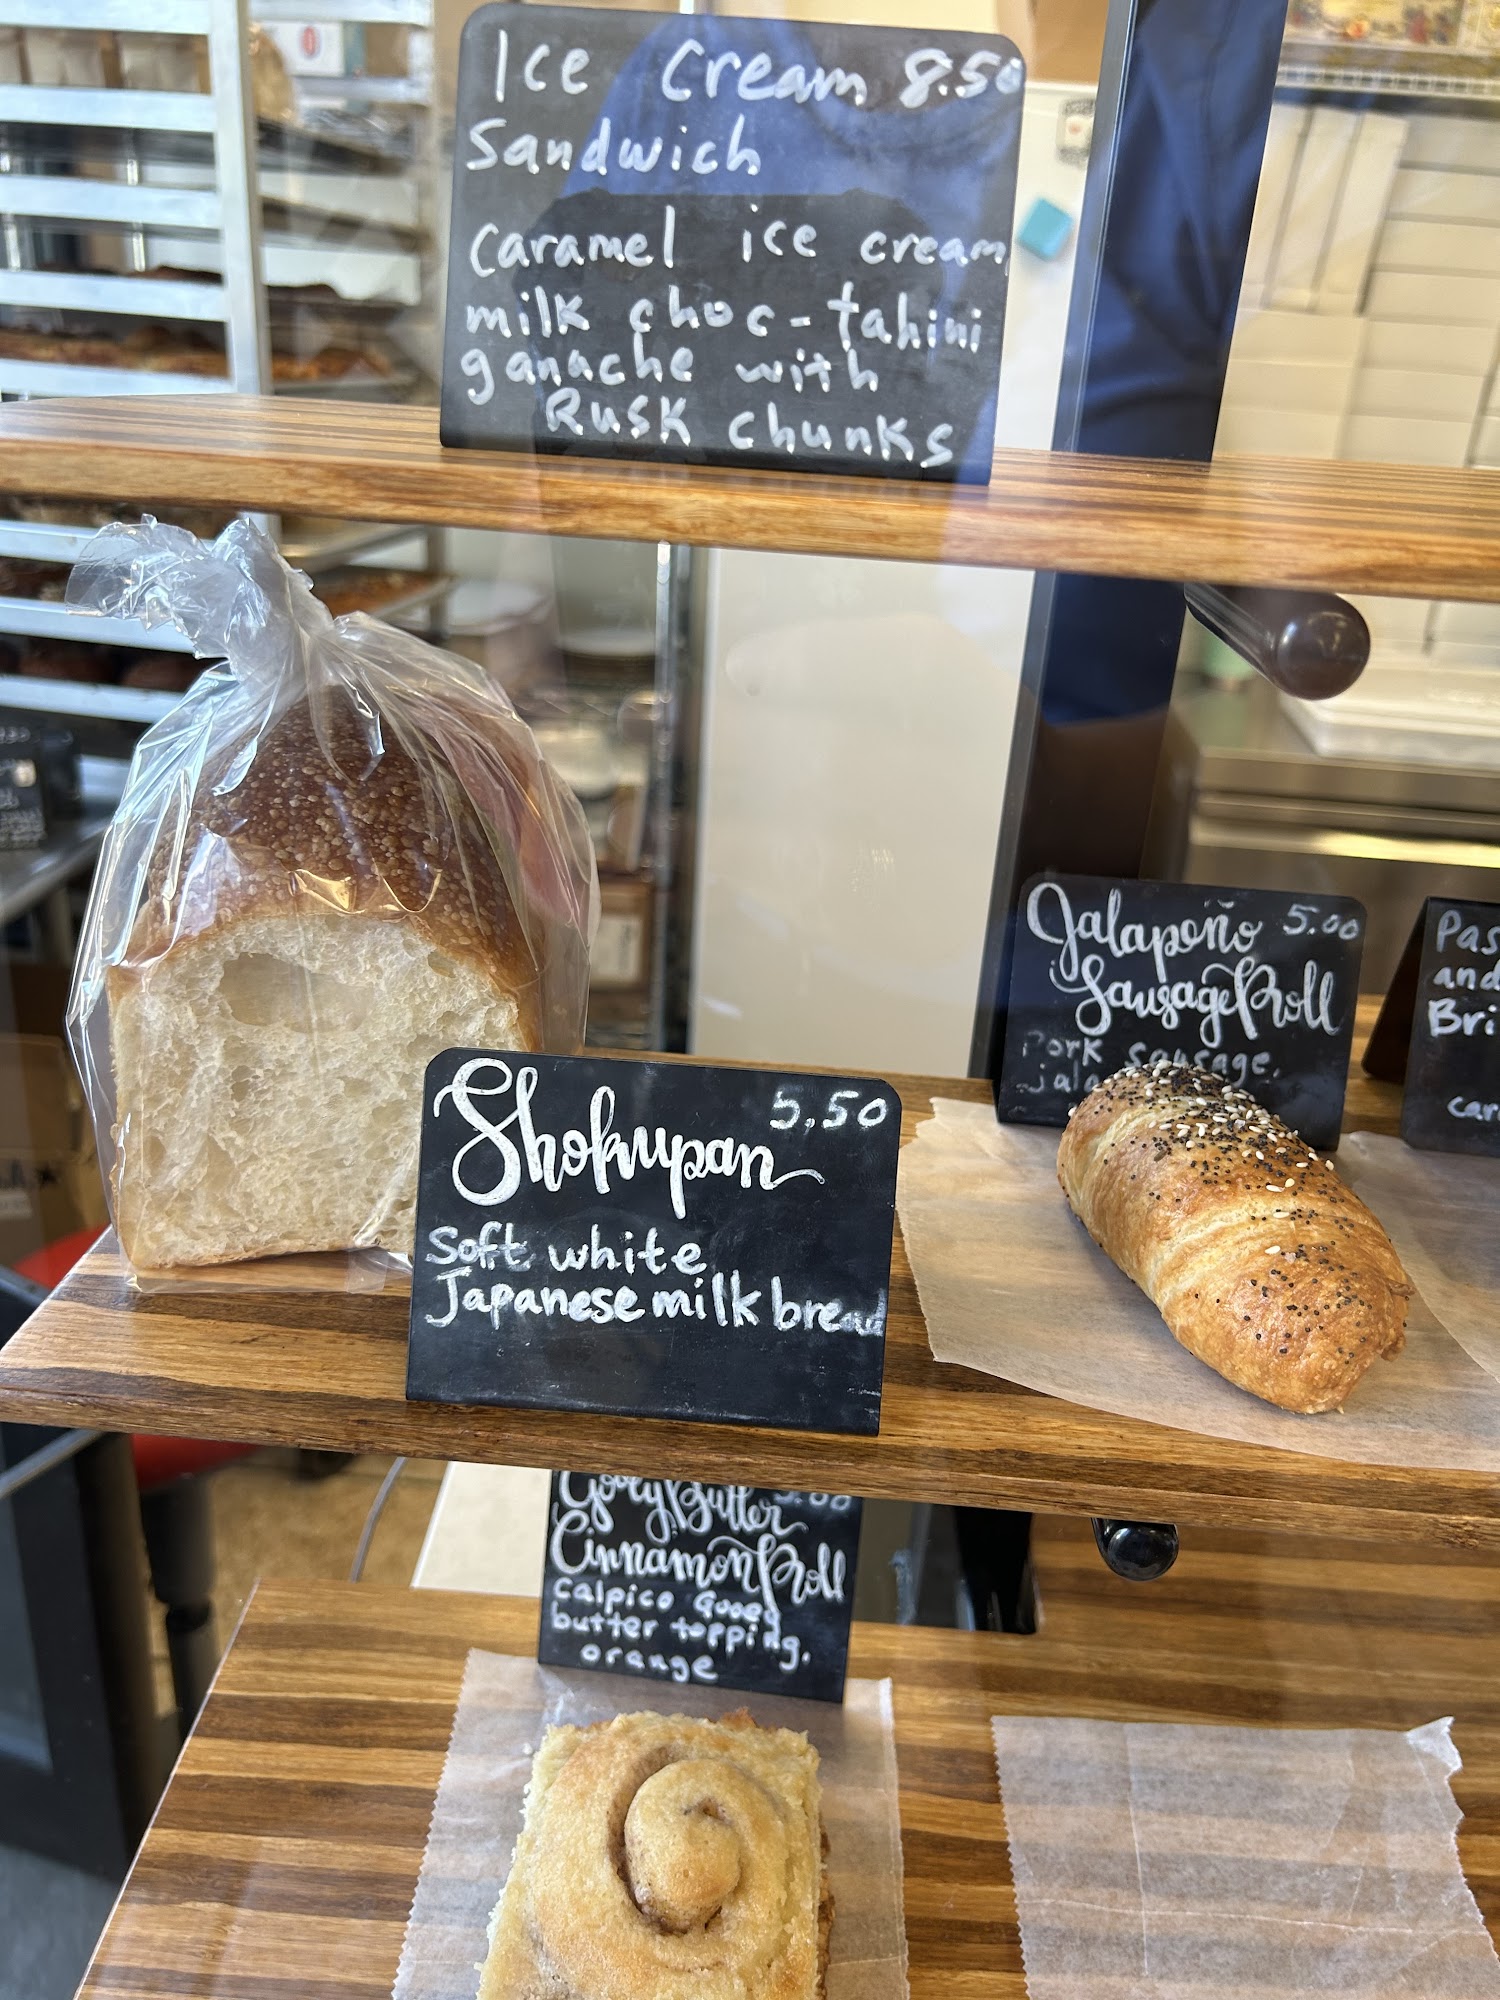 Ice Cream 8.50
Sandwich
Caramel ice cream
milk choc-tahini
ganache with
Rusk chunks
Shokupan 5.50
Soft white
Japanese milk bread
Jalapeño 5.00
Sausage Roll
Pork sausage,
jala
Pas
and
Bri
car
Gooey Butter
Cinnamon Roll
Calpico Gooey
butter topping,
orange